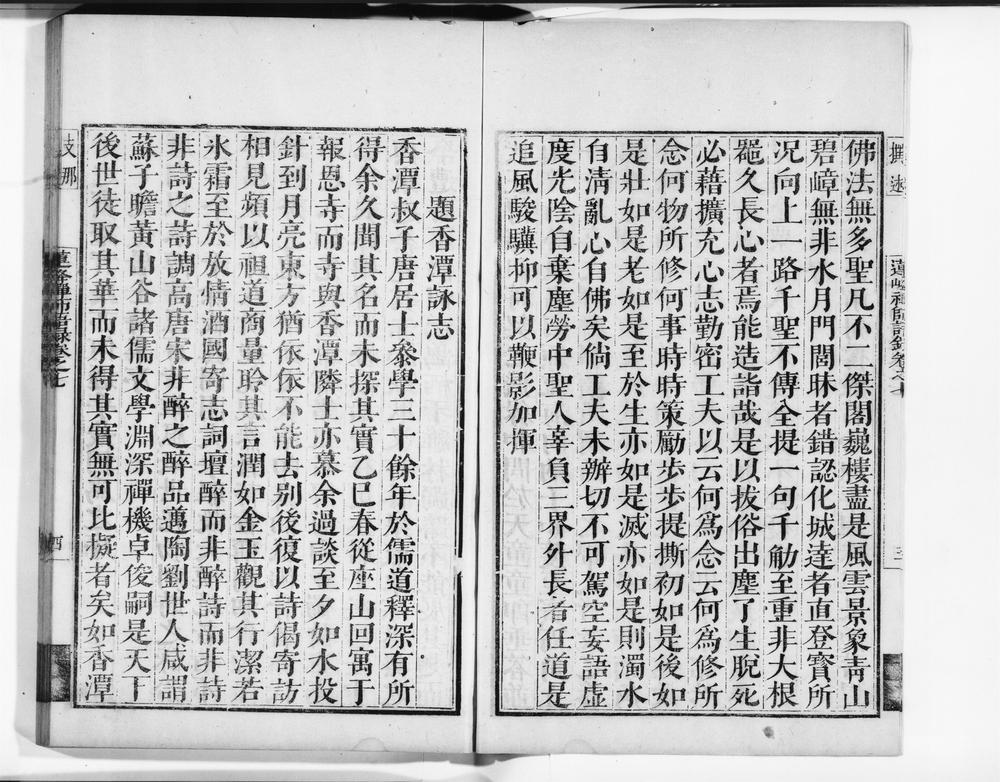 佛法無多聖凡不二傑閣巍樓盡是風雲景象靑山
碧嶂無非水月門閭昧者錯認化城達者直登寳所
况向上一路千聖不傳全提一句千觔至重非大根
噐久長心者焉能造詣哉是以拔俗出塵了生脫死
必藉擴充心志勤密工夫以云何爲念云何爲修所
念何物所修何事時時策勵步步提撕初如是後如
是壯如是老如是至於生亦如是滅亦如是則濁水
自淸亂心自佛矣倘工夫未辦切不可駕空妄語虛
度光陰自棄塵勞中聖人辜負三界外長者任道是
追風駿驥抑可以鞭影加揮
蓮峰禪師語錄卷之七
三
題香潭詠志
香潭叔子唐居士參學三十餘年於儒道釋深有所
得余久聞其名而未探其實乙巳春從座山回寓于
報恩寺而寺與香潭隣士亦慕余過談至夕如水投
針到月亮東方猶依依不能去别後復以詩偈寄訪
相見頻以祖道商量聆其言潤如金玉觀其行潔若
氷霜至於放情酒國寄志詞壇醉而非醉詩而非詩
非詩之詩調高唐宋非醉之醉品邁陶劉世人咸謂
蘇子瞻黃山谷諸儒文學淵深禪機卓俊嗣是天下
後世徒取其華而未得其實無可比擬者矣如香潭
支那
蓮峰禪師語錄卷之七
四